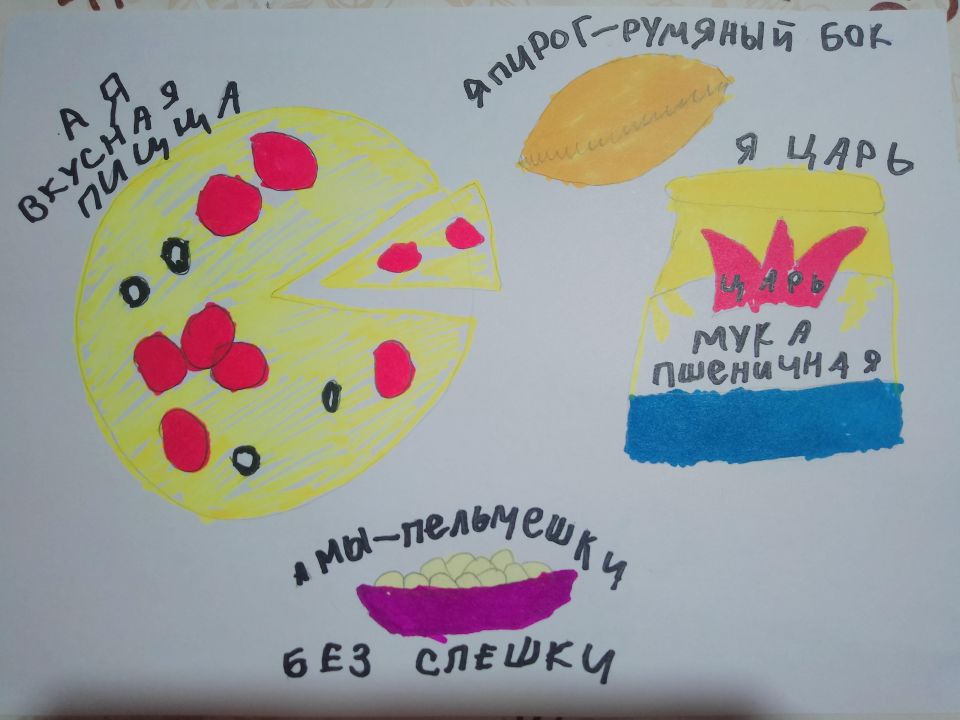 А Я
ВКУСНАЯ
ПИЩЩА
Я ПИРОГ-РУМЯНЫЙ БОК
Я ЦАРЬ
ЦАРЬ
МУКА
ПШЕНИЧНАЯ
А МЫ-ПЕЛЬМЕШКИ
БЕЗ СПЕШКИ